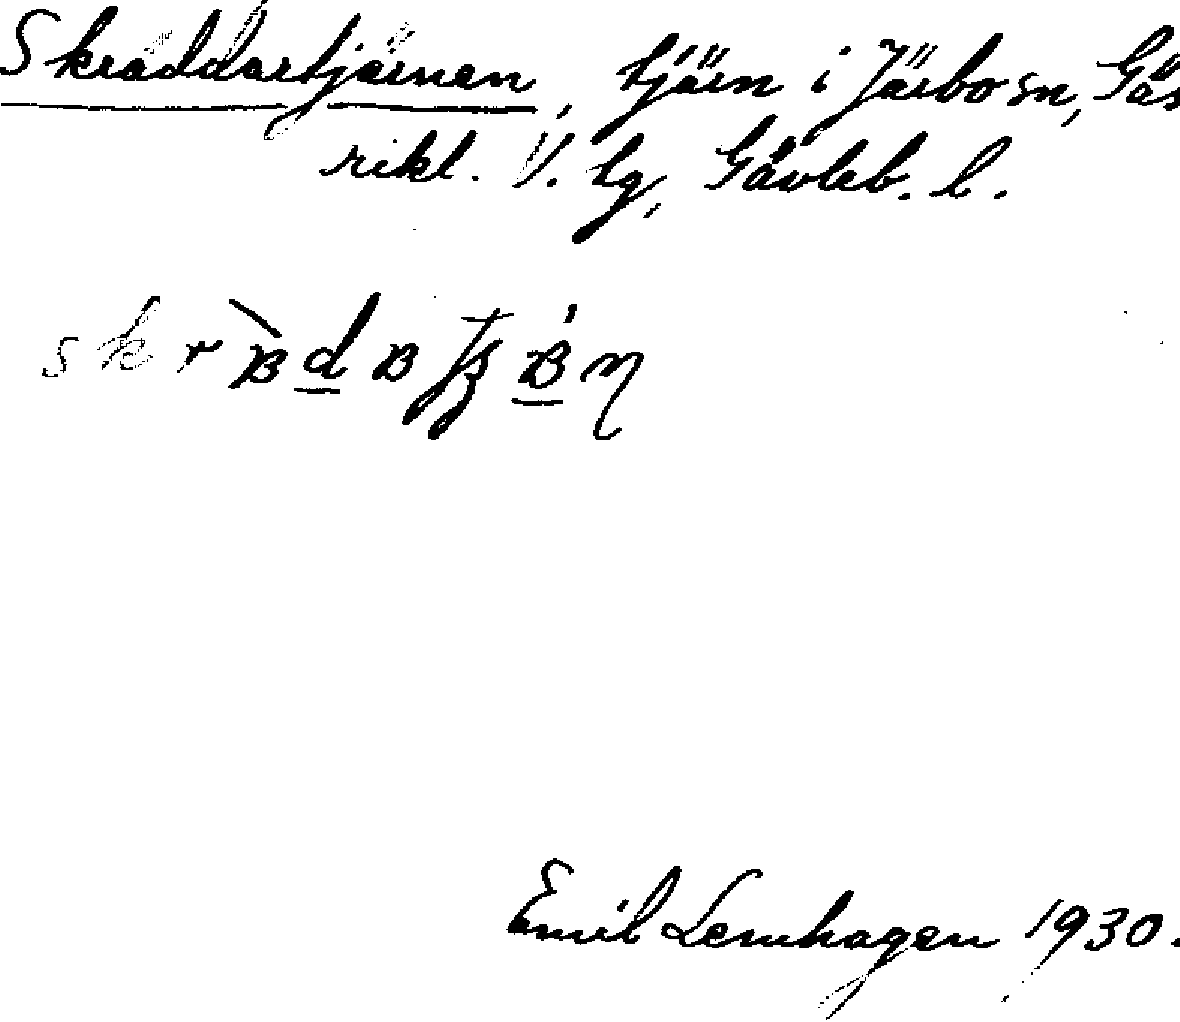 Skräddartjärnen, tjärn i Järbo sn, Gäs
rikl. V. tg, Gävleb. l.
Emil Lemhagen 1930.